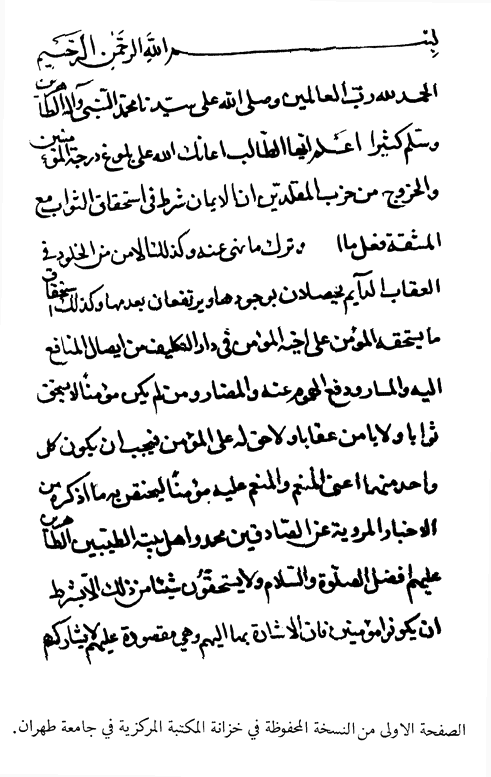 بسم الله الرحمن الرحيم
الحمد لله رب العالمين وصلى الله على سيدنا محمد النبي وآله الطاهرين
وسلم كثيرا اعلم ايها الطالب اعانك الله على بلوغ درجة المؤمنين
والخروج من حزب المقلدين ان الايمان شرط في استحقاق الثواب مع
المشقة فعل ما وترك ما نهى عنه وكذلك الامن من الخلود في
العقاب الدآيم يحصلان بوجودها ويرتفعان بعدمها وكذلك استحقاق
ما يستحقه المؤمن على اخيه المؤمن في دار التكليف من ايصال المنافع
اليه والمسار ودفع الهموم عنه والمضار ومن لم يكن مؤمنًا لا يستحق
ثوابا ولا يامن عقابا ولا حق له على المؤمن فيجب ان يكون كل
واحد منهما اعنى المُنعِم والمنعم عليه مؤمنًا ليعتقن به ما اذكره من
الاخبار المروية عن الصادقين محمد واهل بيته الطيبين الطاهرين
عليهم افضل الصلوة والسلام ولا يستحقون شيئا من ذلك الا بشرط
ان يكونوا مؤمنين فان الاشارة بها اليهم وهي مقصورة عليهم لا يشاركهم
الصفحة الاولى من النسخة المحفوظة في خزانة المكتبة المركزية في جامعة طهران.